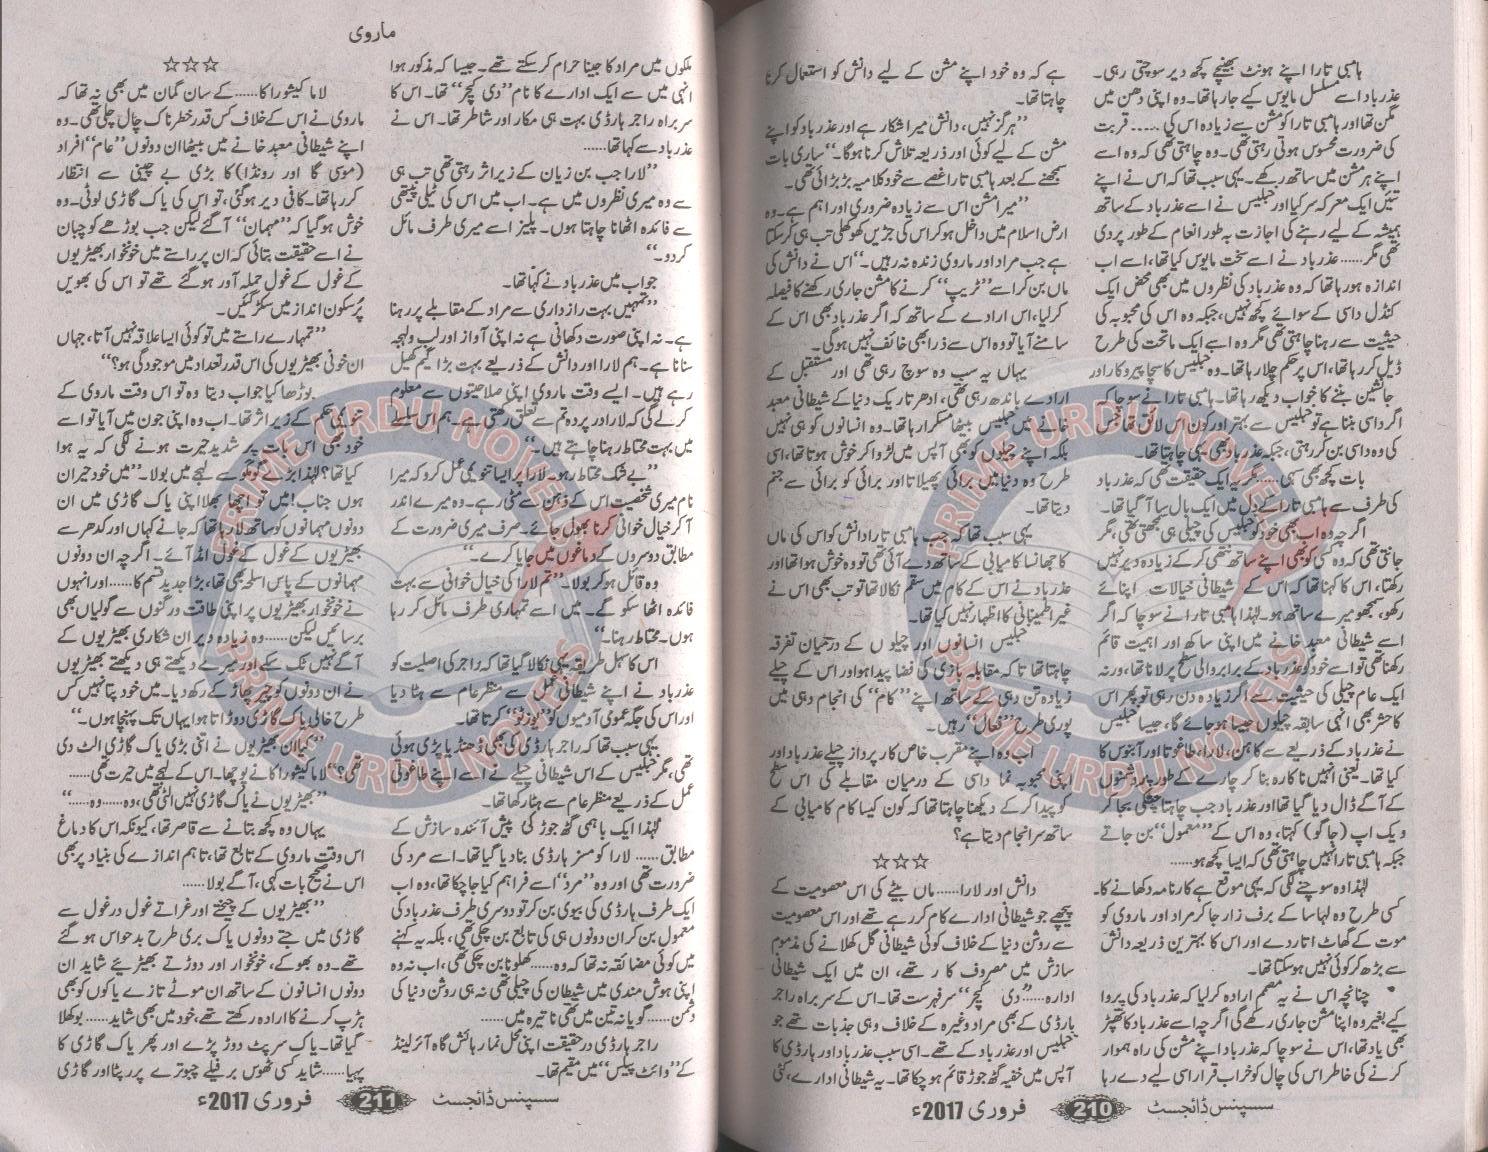 ہامبی تارا اپنے ہونٹ بھینچے کچھ دیر سوچتی رہی۔
عذر باد اسے مسلسل مایوس کیے جا رہا تھا۔ وہ اپنی دھن میں
مگن تھا اور ہامبی تارا کو مشن سے زیادہ اس کی ..... قربت
کی ضرورت محسوس ہوتی رہتی تھی۔ وہ چاہتی تھی کہ وہ اسے
اپنے ہر مشن میں ساتھ رکھے۔ یہی سبب تھا کہ اس نے اپنے
تئیں ایک معرکہ سر کیا اور جبلیس نے اسے عذر باد کے ساتھ
ہمیشہ کے لیے رہنے کی اجازت بہ طور انعام کے طور پر دی
تھی مگر...... عذر باد نے اسے سخت مایوس کیا تھا، اسے اب
اندازہ ہو رہا تھا کہ وہ عذر باد کی نظروں میں بھی محض ایک
کنڈل داسی کے سوائے کچھ نہیں، جبکہ وہ اس کی محبوبہ کی
حیثیت سے رہنا چاہتی تھی مگر وہ اسے ایک ماتحت کی طرح
ڈیل کر رہا تھا، اس پر حکم چلا رہا تھا۔ وہ جبلیس کا سچا پیروکار اور
جانشین بننے کا خواب دیکھ رہا تھا۔ ہامبی تارا نے سوچا کہ
اگر داسی بننا ہے تو جبلیس سے بہتر اور کون اس لائق تھا جس
کی وہ داسی بن کر رہتی، جبکہ عذر باد بھی یہی چاہتا تھا۔
بات کچھ بھی تھی...... مگر یہ ایک حقیقت تھی کہ عذر باد
کی طرف سے ہامبی تارا کے دل میں ایک بال سا آ گیا تھا۔
اگرچہ وہ اب بھی خود کو جبلیس کی چیلی ہی سمجھتی تھی، مگر
جانتی تھی کہ وہ کسی کو بھی اپنے ساتھ نتھی کر کے زیادہ دیر نہیں
رکھتا، اس کا کہنا تھا کہ اس کے شیطانی خیالات اپنائے
رکھو، سمجھو میرے ساتھ ہو۔ لہٰذا ہامبی تارا نے سوچا کہ اگر
اسے شیطانی معبد خانے میں اپنی ساکھ اور اہمیت قائم
رکھنا تھی تو اسے خود کو عذر باد کے برابر والی سطح پر لانا تھا، ورنہ
ایک عام چیلی کی حیثیت سے اگر زیادہ دن رہی تو پھر اس
کا حشر بھی انہی سابقہ چیلوں جیسا ہو جائے گا، جیسا جبلیس
نے عذر باد کے ذریعے سے کاہن، لارا، طاغوتا اور آبنوس کا
کیا تھا۔ یعنی انہیں ناکارہ بنا کر چارے کے طور پر روشنوں
کے آگے ڈال دیا گیا تھا اور عذر باد جب چاہتا چٹکی بجا کر
ویک اپ (جاگو) کہتا، وہ اس کے ’’معمول‘‘ بن جاتے
جبکہ ہامبی تارا نہیں چاہتی تھی کہ ایسا کچھ ہو......
لہٰذا وہ سوچنے لگی کہ یہی موقع ہے کارنامہ دکھانے کا۔
کسی طرح وہ لہاسا کے برف زار جا کر مراد اور ماروی کو
موت کے گھاٹ اتار دے اور اس کا بہترین ذریعہ دانش
سے بڑھ کر کوئی نہیں ہو سکتا تھا۔
چنانچہ اس نے یہ مصمم ارادہ کر لیا کہ عذر باد کی پروا
کیے بغیر وہ اپنا مشن جاری رکھے گی اگرچہ اسے عذر باد کا تھپڑ
بھی یاد تھا، اس نے سوچا کہ عذر باد اپنے مشن کی راہ ہموار
کرنے کی خاطر اس کی چال کو خراب قرار اسی لیے دے رہا
ہے کہ وہ خود اپنے مشن کے لیے دانش کو استعمال کرنا
چاہتا تھا۔
’’ہرگز نہیں، دانش میرا شکار ہے اور عذر باد کو اپنے
مشن کے لیے کوئی اور ذریعہ تلاش کرنا ہوگا۔‘‘ ساری بات
سمجھنے کے بعد ہامبی تارا غصے سے خود کلامیہ بڑبڑائی تھی۔
’’میرا مشن اس سے زیادہ ضروری اور اہم ہے۔ وہ
ارض اسلام میں داخل ہو کر اس کی جڑیں کھوکھلی تب ہی کر سکتا
ہے جب مراد اور ماروی زندہ نہ رہیں۔‘‘ اس نے دانش کی
ماں بن کر اسے ’’ٹریپ‘‘ کرنے کا مشن جاری رکھنے کا فیصلہ
کر لیا، اس ارادے کے ساتھ کہ اگر عذر باد بھی اس کے
سامنے آیا تو وہ اس سے ذرا بھی خائف نہیں ہوگی۔
یہاں یہ سب وہ سوچ رہی تھی اور مستقبل کے
ارادے باندھ رہی تھی، ادھر تاریک دنیا کے شیطانی معبد
خانے میں جبلیس بیٹھا مسکرا رہا تھا۔ وہ انسانوں کو ہی نہیں
بلکہ اپنے چیلوں کو بھی آپس میں لڑوا کر خوش ہوتا تھا، اسی
طرح وہ دنیا میں برائی پھیلاتا اور برائی کو برائی سے جنم
دیتا تھا۔
یہی سبب تھا کہ جب ہامبی تارا دانش کو اس کی ماں
کا جھانسا کامیابی کے ساتھ دے آئی تھی تو وہ خوش ہوا تھا اور
عذر باد نے اس کے کام میں سقم نکالا تھا تو تب بھی اس نے
غیر اطمینانی کا اظہار نہیں کیا تھا۔
جبلیس انسانوں اور چیلوں کے درمیان تفرقہ
چاہتا تھا تاکہ مقابلہ بازی کی فضا پیدا ہو اور اس کے چیلے
زیادہ تن دہی کے ساتھ اپنے ’’کام‘‘ کی انجام دہی میں
پوری طرح ’’فعال‘‘ رہیں۔
اب وہ اپنے مقرب خاص کار پرداز چیلے عذر باد اور
اپنی محبوبہ نما داسی کے درمیان مقابلے کی اس سطح
کو پیدا کر کے دیکھنا چاہتا تھا کہ کون کیسا کام کامیابی کے
ساتھ سرانجام دیتا ہے؟
☆☆☆
دانش اور لارا...... ماں بیٹے کی اس معصومیت کے
پیچھے جو شیطانی ادارے کام کر رہے تھے اور اس معصومیت
سے روشن دنیا کے خلاف کوئی شیطانی گل کھلانے کی مذموم
سازش میں مصروف کار تھے، ان میں ایک شیطانی
ادارہ...... ’’دی کچر‘‘ سرفہرست تھا۔ اس کے سربراہ راجر
ہارڈی کے بھی مراد وغیرہ کے خلاف وہی جذبات تھے جو
جبلیس اور عذر باد کے تھے۔ اسی سبب عذر باد اور ہارڈی کا
آپس میں خفیہ گٹھ جوڑ قائم ہو چکا تھا۔ یہ شیطانی ادارے، کئی
سسپنس ڈائجسٹ 210 فروری 2017ء
ماروی
ملکوں میں مراد کا جینا حرام کر سکتے تھے۔ جیسا کہ مذکور ہوا
انہی میں سے ایک ادارے کا نام ’’دی کچر‘‘ تھا۔ اس کا
سربراہ راجر ہارڈی بہت ہی مکار اور شاطر تھا۔ اس نے
عذر باد سے کہا تھا......
’’لارا جب بن زیان کے زیر اثر رہتی تھی تب ہی
سے وہ میری نظروں میں ہے۔ اب میں اس کی ٹیلی پیتھی
سے فائدہ اٹھانا چاہتا ہوں۔ پلیز اسے میری طرف مائل
کر دو۔‘‘
جواب میں عذر باد نے کہا تھا۔
’’تمہیں بہت رازداری سے مراد کے مقابلے پر رہنا
ہے۔ نہ اپنی صورت دکھانی ہے نہ اپنی آواز اور لب و لہجہ
سنانا ہے۔ ہم لارا اور دانش کے ذریعے بہت بڑا گیم کھیل
رہے ہیں۔ ایسے وقت ماروی اپنی صلاحیتوں سے معلوم
کر لے گی کہ لارا در پردہ تم سے تعلق رکھتی ہے۔ ہم اس سلسلے
میں بہت محتاط رہنا چاہتے ہیں۔‘‘
’’بے شک محتاط رہو۔ لارا پر ایسا تنویمی عمل کرو کہ میرا
نام میری شخصیت اس کے ذہن سے مٹی رہے۔ وہ میرے اندر
آ کر خیال خوانی کرنا بھول جائے۔ صرف میری ضرورت کے
مطابق دوسروں کے دماغوں میں جایا کرے۔‘‘
وہ قائل ہو کر بولا۔ ’’تم لارا کی خیال خوانی سے بہت
فائدہ اٹھا سکو گے۔ میں اسے تمہاری طرف مائل کر رہا
ہوں۔ محتاط رہنا۔‘‘
اس کا سہل طریقہ یہی نکالا گیا تھا کہ راجر کی اصلیت کو
عذر باد نے اپنے شیطانی عمل سے منظر عام سے ہٹا دیا
اور اس کی جگہ عمومی آدمیوں کو ’’پوزٹو‘‘ کرتا تھا۔
یہی سبب تھا کہ راجر ہارڈی کی بھی ڈھنڈیا پڑی ہوئی
تھی، مگر جبلیس کے اس شیطانی چیلے نے اسے اپنے طاغوتی
عمل کے ذریعے منظر عام سے ہٹا رکھا تھا۔
لہٰذا ایک باہمی گٹھ جوڑ کی پیش آئندہ سازش کے
مطابق...... لارا کو مسز ہارڈی بنا دیا گیا تھا۔ اسے مرد کی
ضرورت تھی اور وہ ’’مرد‘‘ اسے فراہم کیا جا چکا تھا، وہ اب
ایک طرف ہارڈی کی بیوی بن کر تو دوسری طرف عذر باد کی
معمول بن کر ان دونوں ہی کی تابع بن چکی تھی، بلکہ یہ کہنے
میں کوئی مضائقہ نہ تھا کہ وہ...... کھلونا بن چکی تھی، اب نہ وہ
اپنی ہوش مندی میں شیطان کی چیلی تھی نہ ہی روشن دنیا کی
دشمن...... گویا نہ تین میں تھی نہ تیرہ میں......
راجر ہارڈی در حقیقت اپنی محل نما رہائش گاہ آئر لینڈ
کے ’’وائٹ پیلس‘‘ میں مقیم تھا۔
☆☆☆
لاما کیشورا کا...... کے سان گمان میں بھی نہ تھا کہ
ماروی نے اس کے خلاف کس قدر خطرناک چال چلی تھی۔ وہ
اپنے شیطانی معبد خانے میں بیٹھا ان دونوں ’’عام‘‘ افراد
(موسی گا اور رونڈا) کا بڑی بے چینی سے انتظار
کر رہا تھا۔ کافی دیر ہو گئی، تو اس کی یاک گاڑی لوٹی۔ وہ
خوش ہو گیا کہ ’’مہمان‘‘ آ گئے لیکن جب بوڑھے کوچبان
نے اسے حقیقت بتائی کہ ان پر راستے میں خونخوار بھیڑیوں
کے غول کے غول حملہ آور ہو گئے تھے تو اس کی بھویں
پُرسکون انداز میں سکڑ گئیں۔
’’تمہارے راستے میں تو کوئی ایسا علاقہ نہیں آتا، جہاں
ان خونی بھیڑیوں کی اس قدر تعداد میں موجودگی ہو؟‘‘
بوڑھا کیا جواب دیتا وہ تو اس وقت ماروی کے
تنویمی حکم کے زیر اثر تھا۔ اب وہ اپنی جون میں آیا تو اسے
خود بھی اس بات پر شدید حیرت ہونے لگی کہ یہ ہوا
کیا تھا؟ لہٰذا بڑے گومگو سے لہجے میں بولا۔ ’’میں خود حیران
ہوں جناب! میں تو اچھا بھلا اپنی یاک گاڑی میں ان
دونوں مہمانوں کو ساتھ لا رہا تھا کہ جانے کہاں اور کدھر سے
بھیڑیوں کے غول کے غول امڈ آئے۔ اگرچہ ان دونوں
مہمانوں کے پاس اسلحہ بھی تھا، بڑا جدید قسم کا...... اور انہوں
نے خونخوار بھیڑیوں پر اپنی طاقت ور گنوں سے گولیاں بھی
برسائیں لیکن...... وہ زیادہ دیر ان شکاری بھیڑیوں کے
آگے نہیں ٹک سکے اور میرے دیکھتے ہی دیکھتے بھیڑیوں
نے ان دونوں کو چیر پھاڑ کے رکھ دیا۔ میں خود پتا نہیں کس
طرح خالی یاک گاڑی دوڑاتا ہوا یہاں تک پہنچا ہوں۔‘‘
’’کیا ان بھیڑیوں نے اتنی بڑی یاک گاڑی الٹ دی
تھی؟‘‘ لاما کیشورا کا نے پوچھا۔ اس کے لہجے میں حیرت تھی......
’’بھیڑیوں نے یاک گاڑی نہیں الٹی تھی، وہ...... وہ......‘‘
یہاں وہ کچھ بتانے سے قاصر تھا، کیونکہ اس کا دماغ
اس وقت ماروی کے تابع تھا، تاہم اندازے کی بنیاد پر بھی
اس نے صحیح بات کہی، آگے بولا......
’’بھیڑیوں کے چیختے اور غراتے غول در غول سے
گاڑی میں جتے دونوں یاک بری طرح بدحواس ہو گئے
تھے۔ وہ بھوکے، خونخوار اور دوڑتے بھیڑیئے شاید ان
دونوں انسانوں کے ساتھ ان موٹے تازے یاکوں کو بھی
ہڑپ کرنے کا ارادہ رکھتے تھے، خود میں بھی شاید...... بوکھلا
گیا تھا۔ یاک سرپٹ دوڑ پڑے اور پھر یاک گاڑی کا
پہیا...... شاید کسی ٹھوس برفیلے چبوترے پر رپٹا اور گاڑی
سسپنس ڈائجسٹ 211 فروری 2017ء
PRIME URDU NOVELS
PRIME URDU NOVELS
PRIME URDU NOVELS
PRIME URDU NOVELS